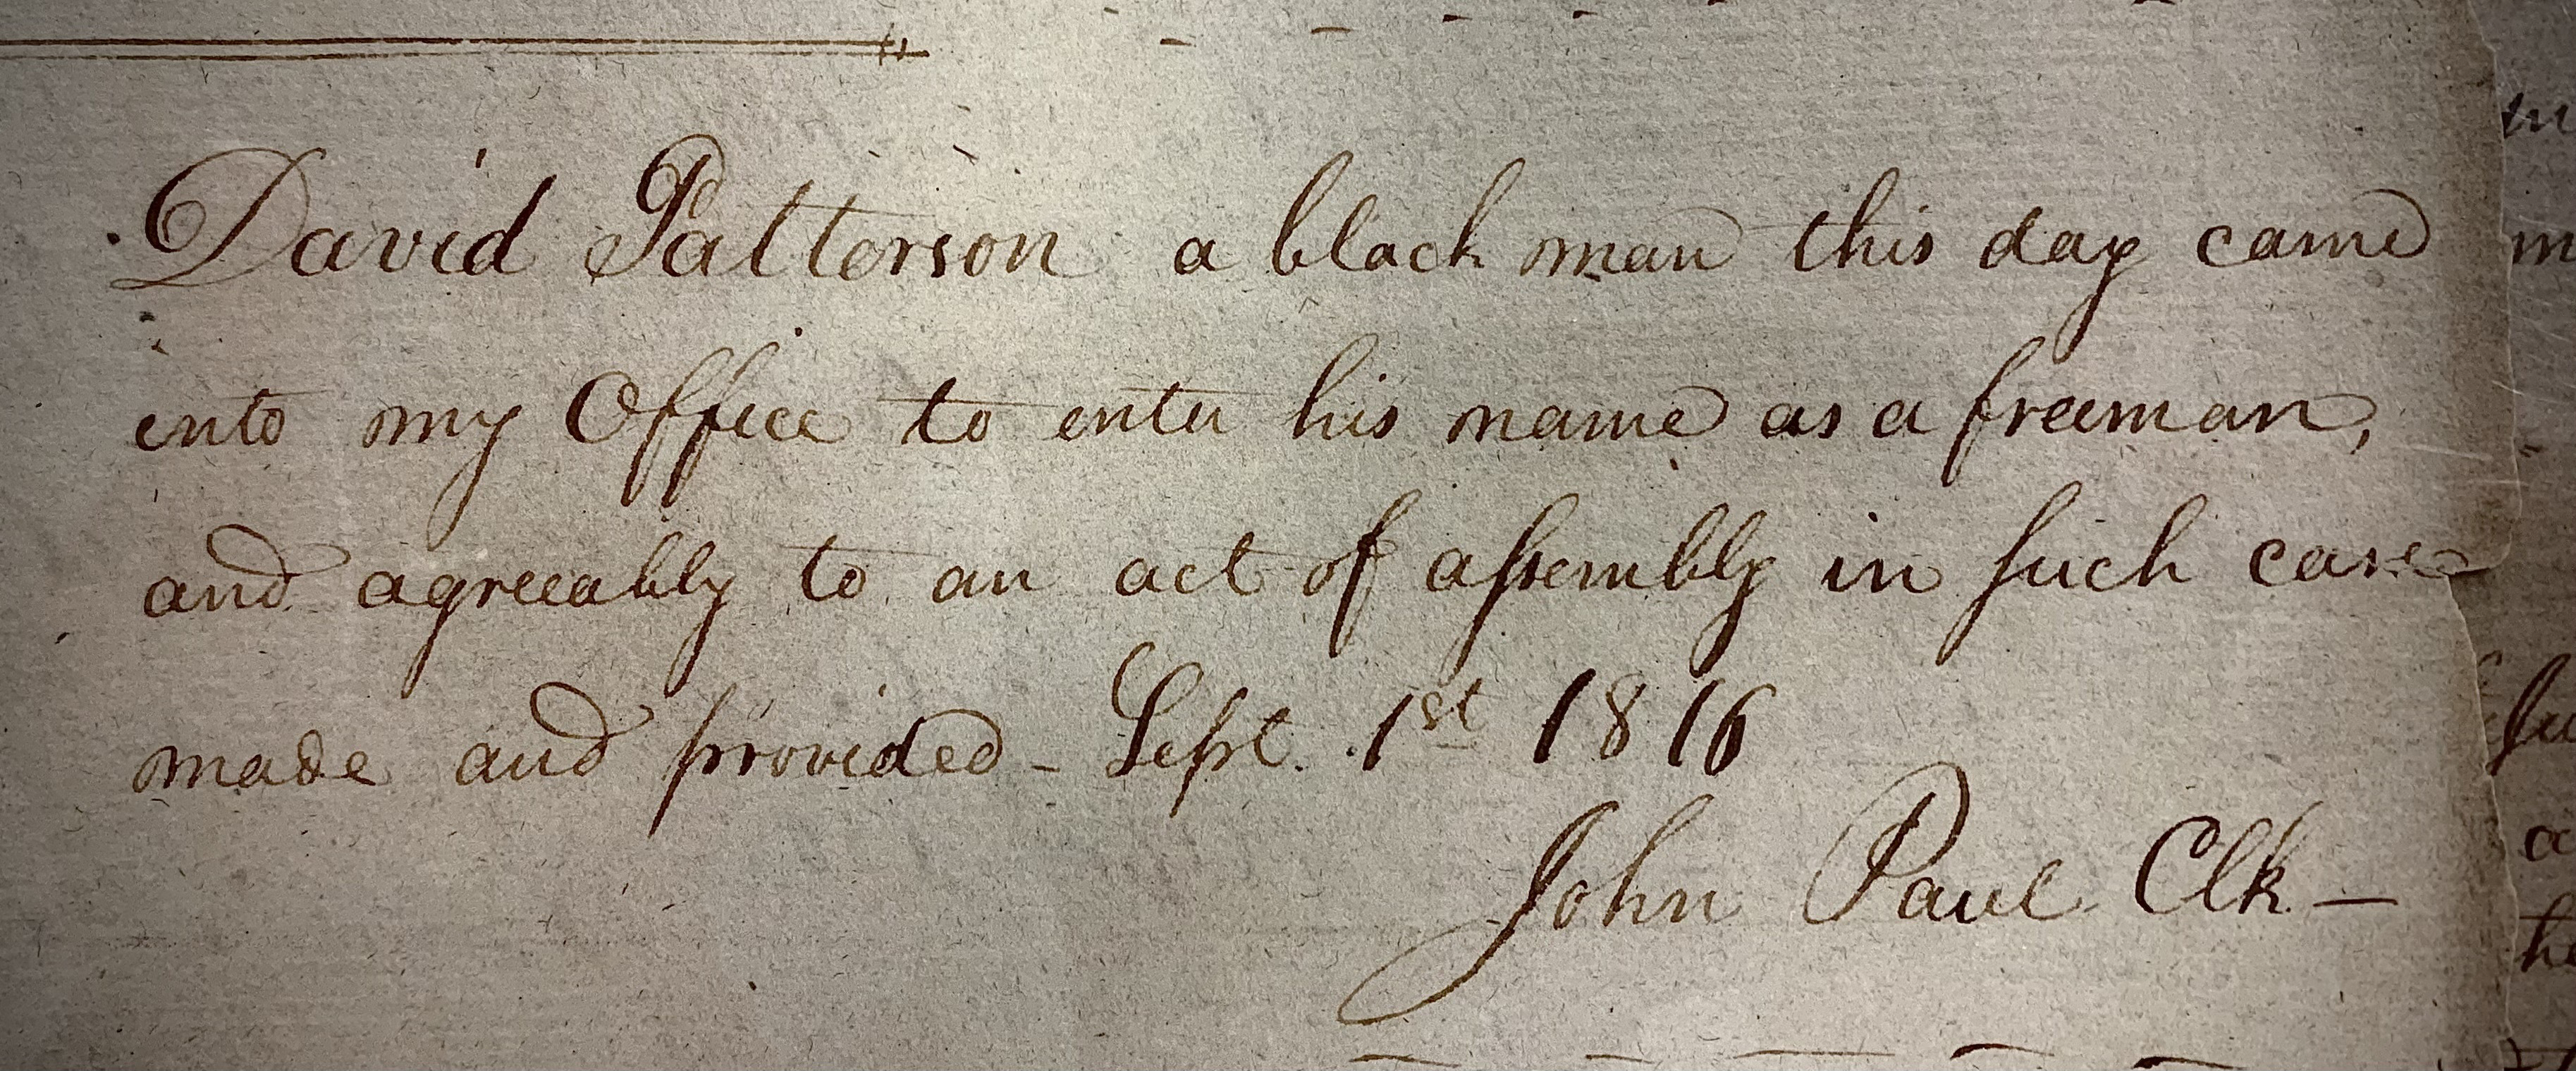 David Patterson a black man this day came
into my Office to enter his name as a freeman,
and agreeably to an act of assembly in such case
made and provided - Sept. 1st 1816
John Paul Clk -